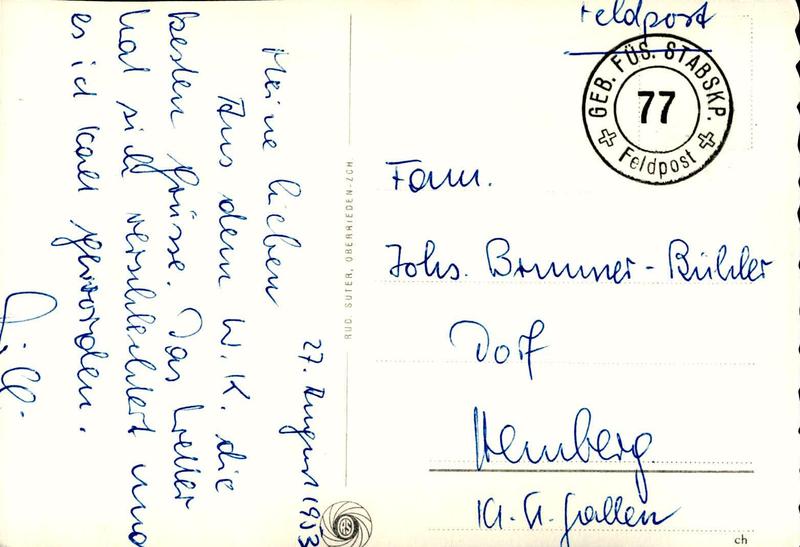 27. August 1953
Meine lieben
Aus dem W. K. die
besten Grüsse. Das Wetter
hat sich verschlechtert und
es ist kalt geworden.
RUD. SUTER, OBERRIEDEN-ZCH
Feldpost
GEB. FÜS. STABSKP.
77
Feldpost
Fam.
Johs. Brunner-Bühler
Dorf
Hemberg
Kt. St. Gallen
ch